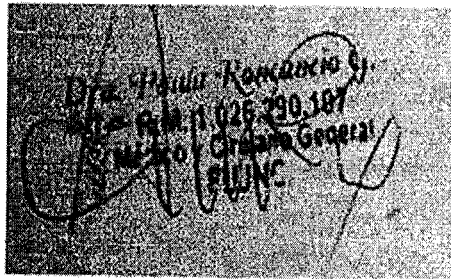 Dra. Paula Roncancio G.
R.M. 1.026.290.187
Médico y Cirujano General
FUJNC